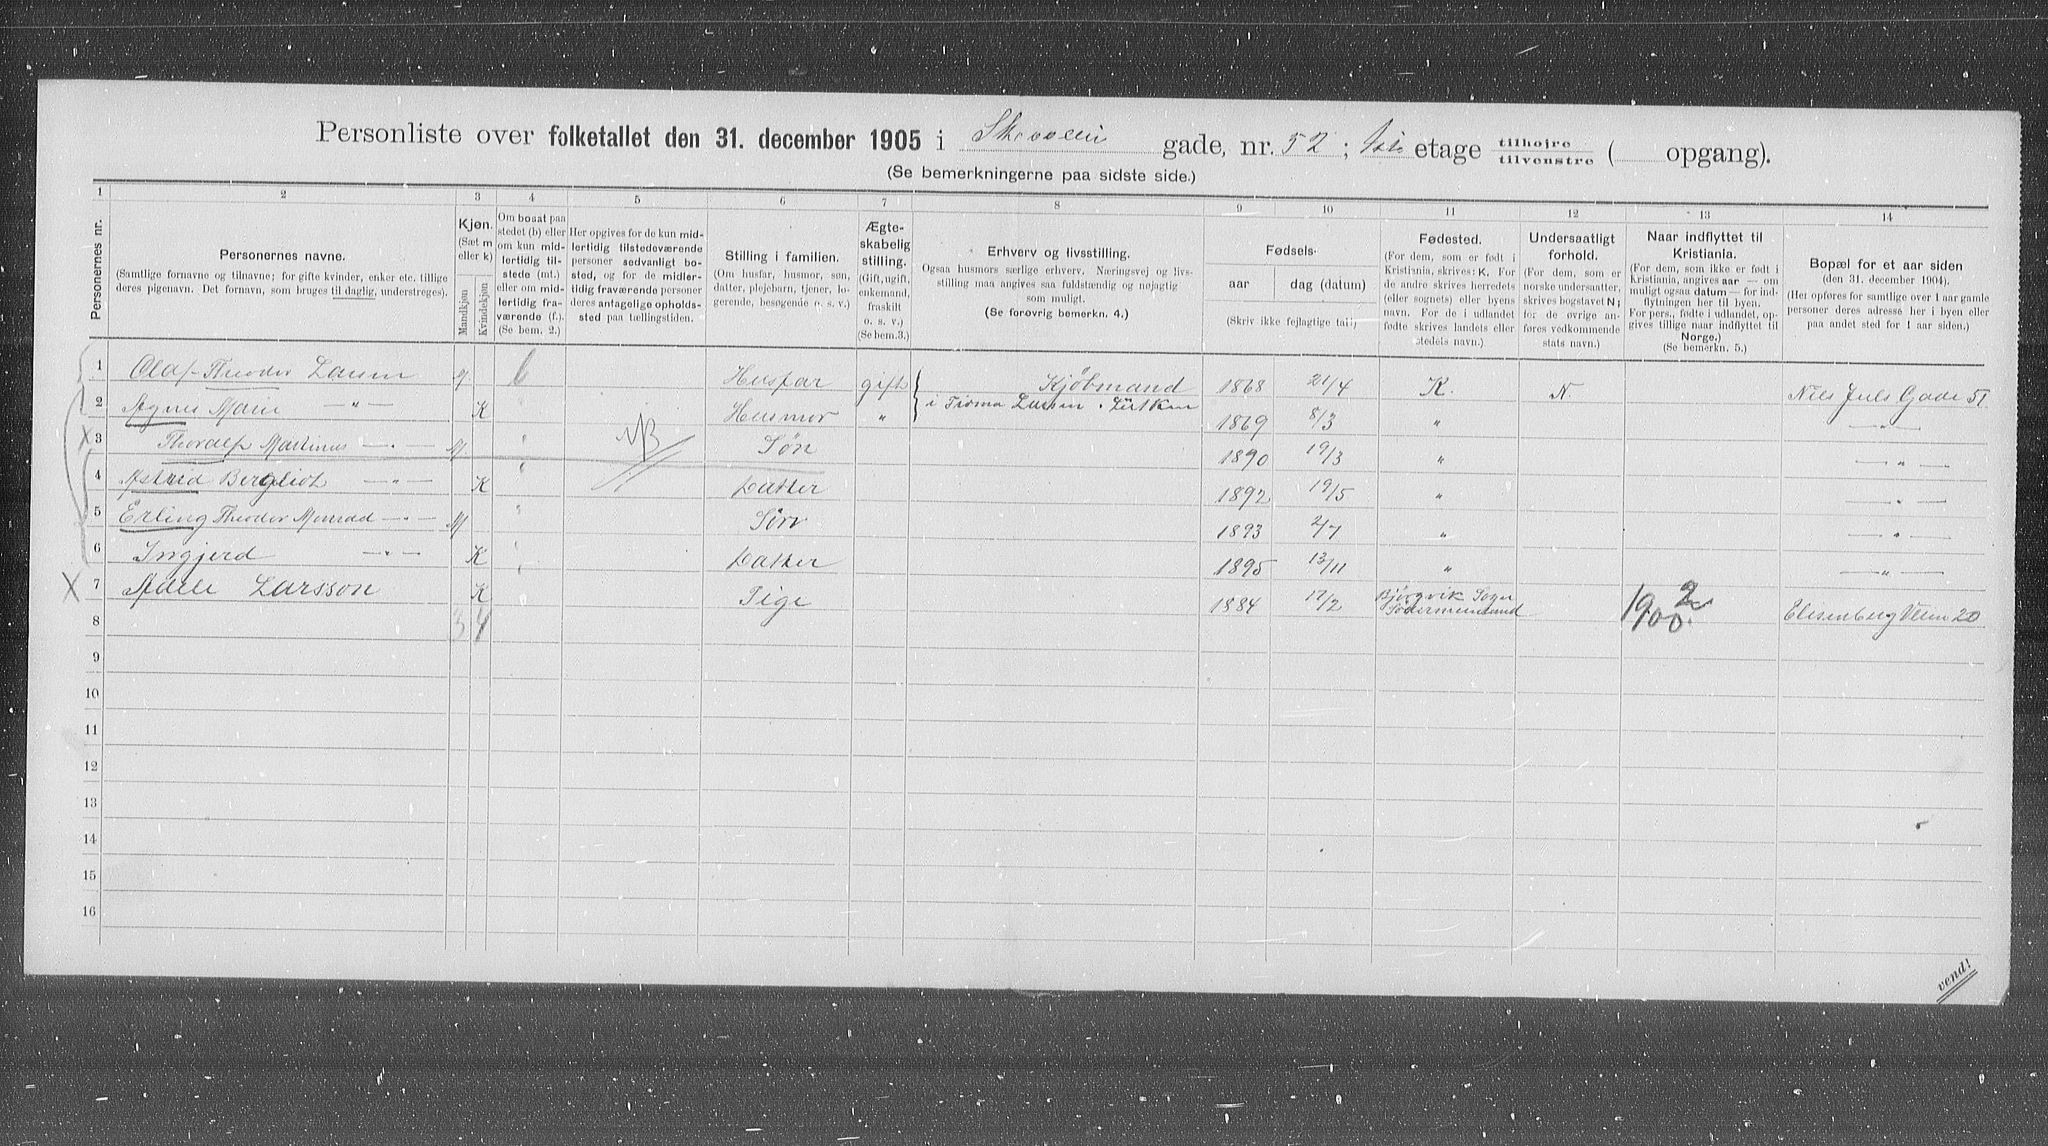 Personliste over folketallet den 31. december 1905 i Skovveien gade, nr. 52; 1ste etage tilhøire tilvenstre ( opgang).
(Se bemerkningerne paa sidste side.)
1 2 3 4 5 6 7 8 9 10 11 12 13 14
Personernes nr.
Personernes navne.
(Samtlige fornavne og tilnavne; for gifte kvinder, enker etc. tillige
deres pigenavn. Det fornavn, som bruges til daglig, understreges).
Kjøn.
(Sæt m
eller k)
Mandkjøn
Kvindekjøn
Om bosat paa
stedet (b) eller
om kun mid-
lertidig til-
stede (mt.)
eller om mid-
lertidig fra-
værende (f.).
(Se bem. 2.)
Her opgives for de kun mid-
lertidig tilstedeværende
personer sedvanlig bo-
sted, og for de midler-
tidig fraværende personer
deres antagelige opholds-
sted paa tællingstiden.
Stilling i familien.
(Om husfar, husmor, søn,
datter, plejebarn, tjener, lo-
gerende, besøgende o. s. v.)
Ægte-
skabelig
stilling.
(Gift, ugift,
enkemand,
fraskilt
o. s. v.)
(Se bem.3.)
Erhverv og livsstilling.
Ogsaa husmors særlige erhverv. Næringsvej og livs-
stilling maa angives saa fuldstændig og nøjagtig
som muligt.
(Se forøvrig bemerkn. 4.)
Fødsels-
aar
dag (datum)
(Skriv ikke fejlagtige tal!)
Fødested.
(For dem, som er født i
Kristiania, skrives: K. For
de andre skrives herredets
(eller sognets) eller byens
navn. For de i udlandet
fødte skrives landets eller
stedets navn.)
Undersaatligt
forhold.
(For dem, som er
norske undersaatter,
skrives bogstavet N;
for de øvrige an-
føres vedkommende
stats navn.)
Naar indflyttet til
Kristiania.
(For dem, som ikke er født i
Kristiania, angives aar — om
muligt ogsaa datum — for ind-
flytningen her til byen.
For pers., fødte i udlandet, op-
gives tillige naar indflyttet til
Norge.)
(Se bemerkn. 5.)
Bopæl for et aar siden
(den 31. december 1904).
(Her opføres for samtlige over 1 aar gamle
personer deres adresse her i byen eller
paa andet sted for 1 aar siden.)
1 Olaf Theodor Larsen m b Husfar gift Kjøbmand 1868 21/4 K. N. Niels Juls Gade 51
2 Agnes Marie — " — K " Husmor " i Firma Larsen & Lütken 1869 8/3 " — " —
X 3 Thoralf Martinus — " — M " NB Søn 1890 19/3 " — " —
4 Astrid Bergliot — " — K " Datter 1892 19/5 " — " —
5 Erling Theodor Monrad — " — M " Søn 1893 2/7 " — " —
6 Ingjerd — " — K " Datter 1895 13/11 " — " —
X 7 Adele Larsson K " Pige 1884 12/2 Bjørgvik Sogn Södermanland 1900. 2 Elisenberg Veien 20
8 3 4
9
10
11
12
13
14
15
16
vend!